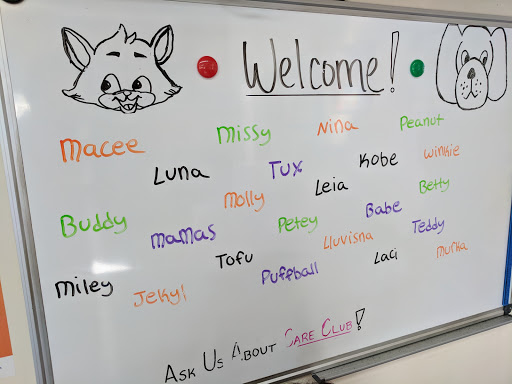 Welcome!
Macee Missy Nina Peanut
Luna Tux Kobe Winkie
Molly Leia Betty
Buddy Mamas Petey Babe Teddy
Tofu Lluvisna Laci Murka
Miley Jekyl Puffball
Ask Us About Care Club!